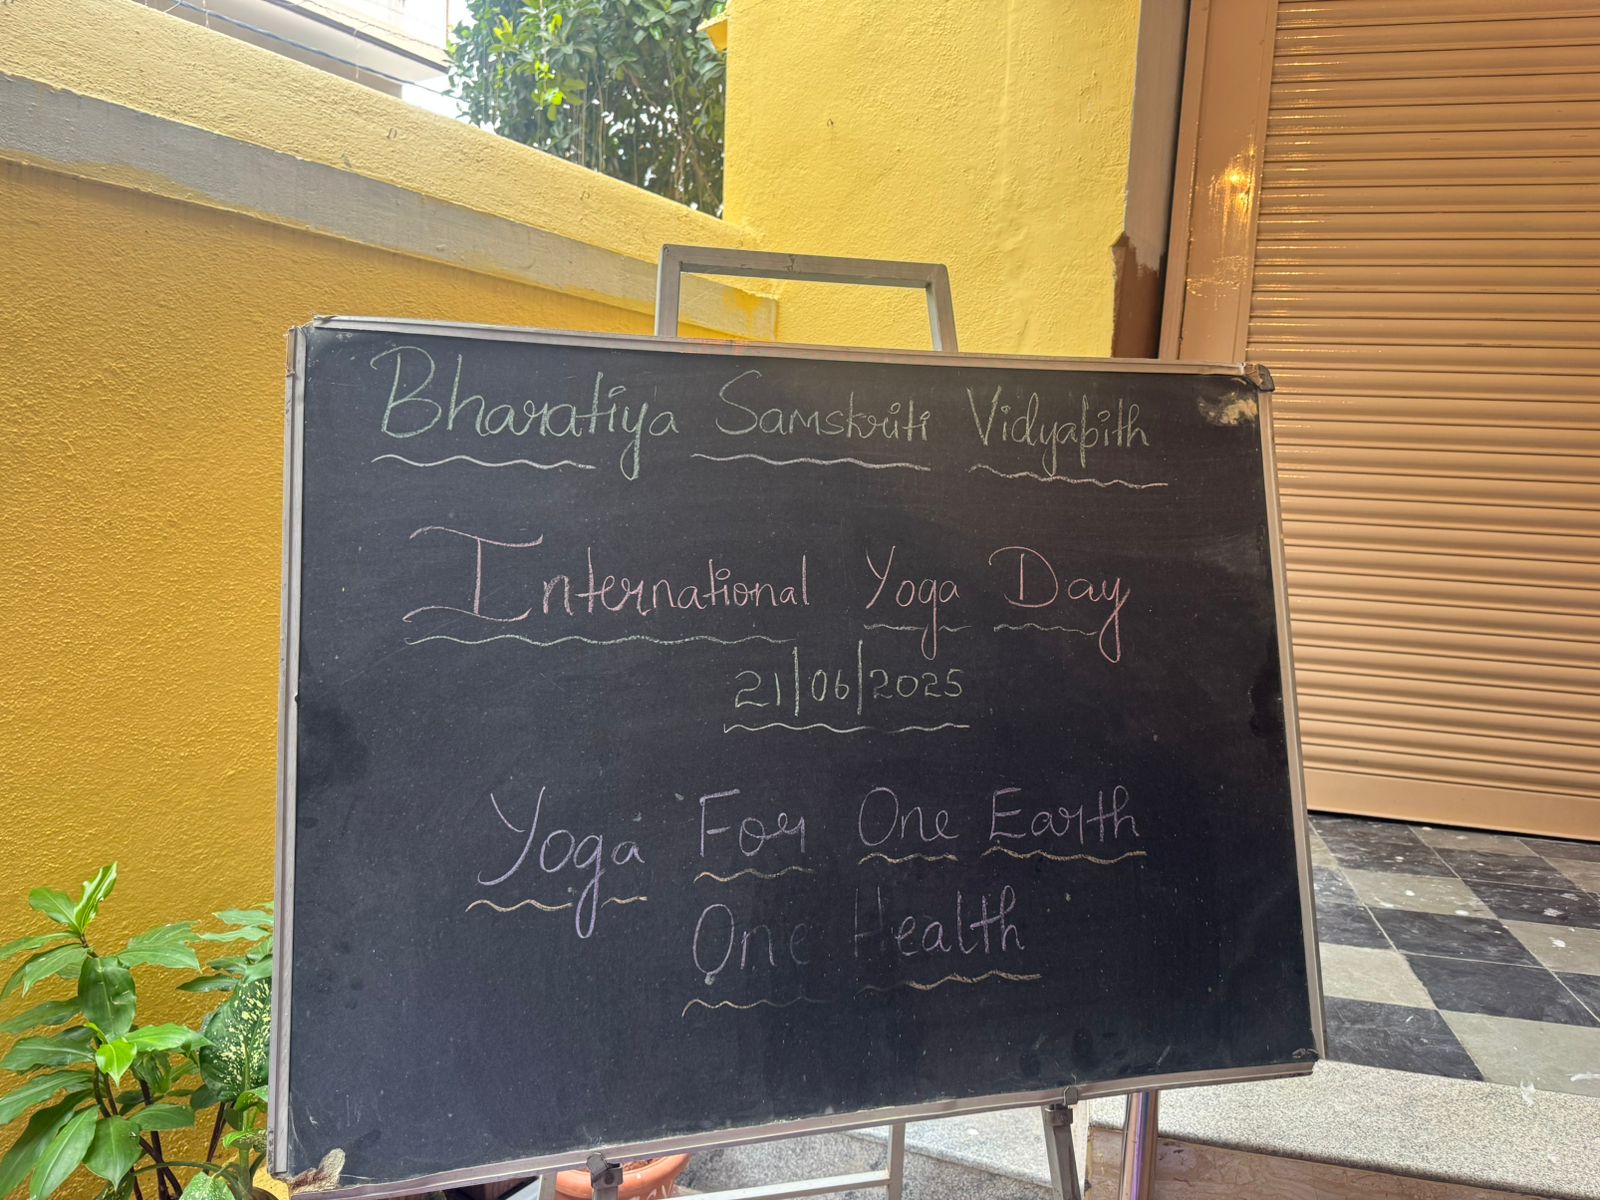 Bharatiya Samskriti Vidyapith
International Yoga Day
21/06/2025
Yoga For One Earth
One Health